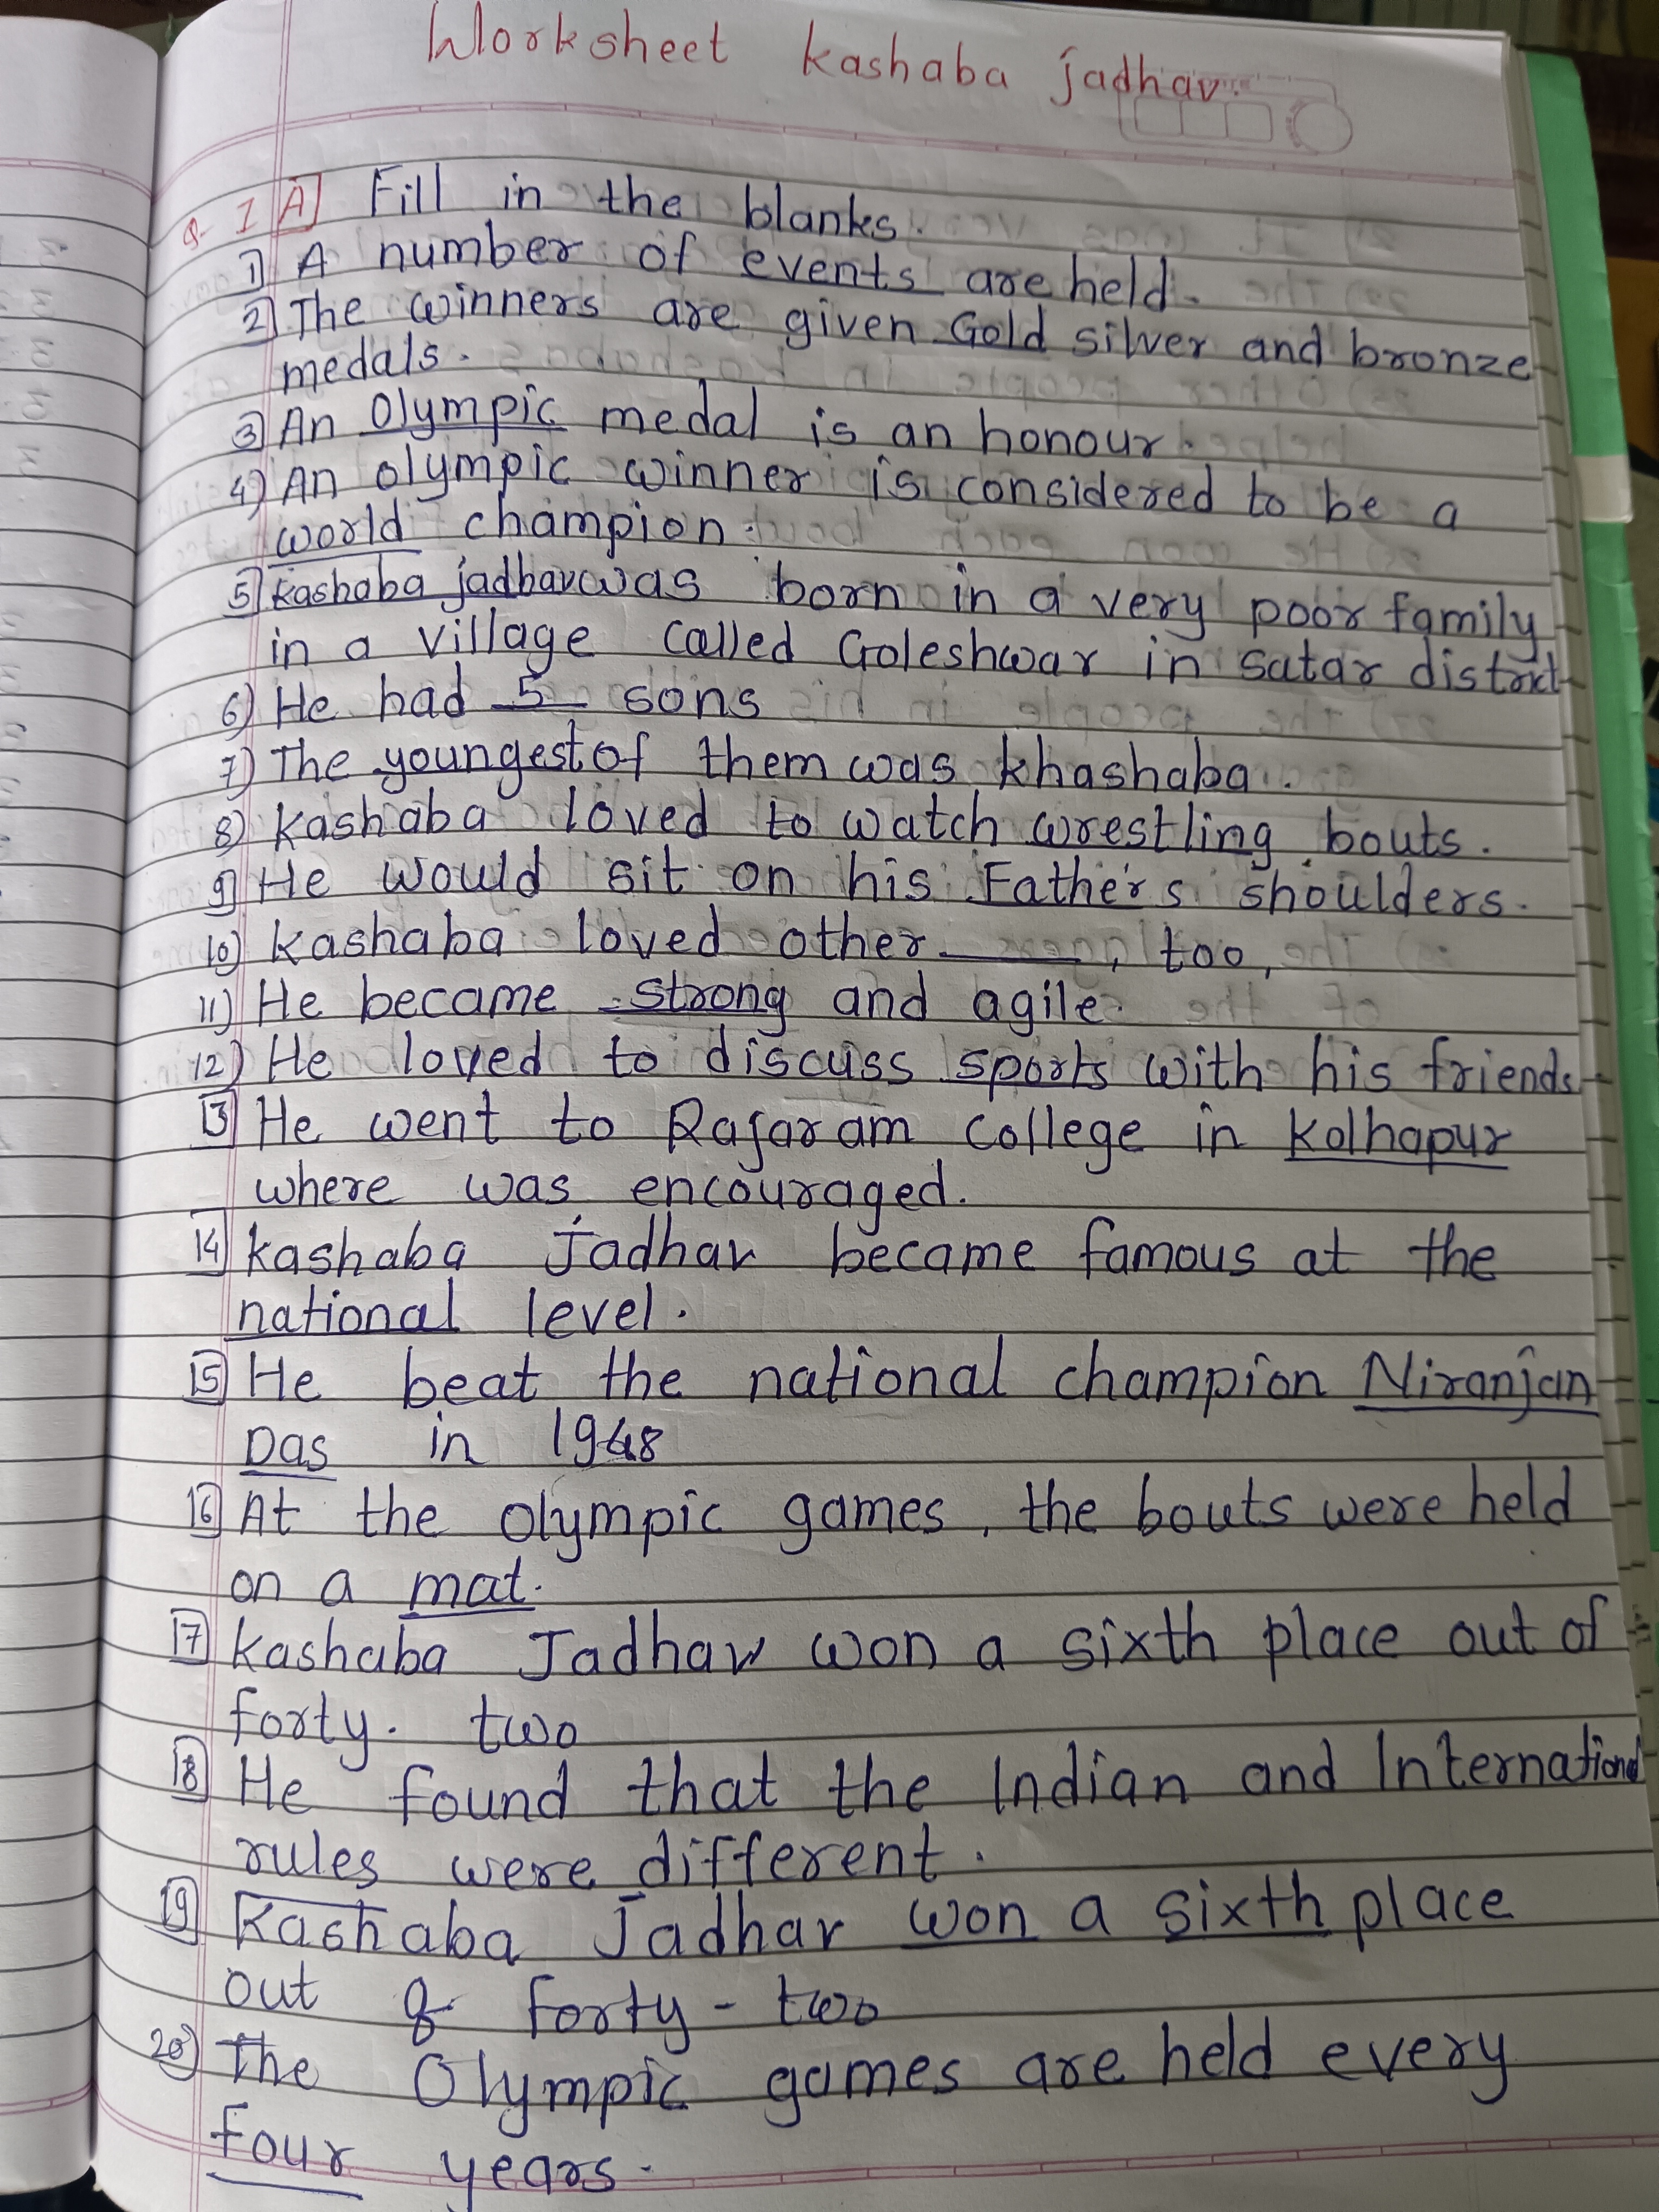 Worksheet kashaba jadhav.
Q. 1 A] Fill in the blanks.
1] A number of events are held.
2] The winners are given Gold silver and bronze
medals.
3] An Olympic medal is an honour.
4) An olympic winner is considered to be a
world champion.
5] kashaba jadhav was born in a very poor family
in a village called Goleshwar in satar district
6) He had 5 sons
7) The youngest of them was khashaba.
8) kashaba loved to watch wrestling bouts.
9] He would sit on his Father's shoulders.
10) kashaba loved other ______, too,
11) He became strong and agile.
12) He loved to discuss sports with his friends
13] He went to Rajaram college in Kolhapur
where was encouraged.
14] kashaba Jadhav became famous at the
national level.
15] He beat the national champion Niranjan
Das in 1948
16] At the olympic games, the bouts were held
on a mat.
17] kashaba Jadhav won a sixth place out of
forty. two
18] He found that the Indian and International
rules were different.
19] Kashaba Jadhav won a sixth place
out of forty - two
20) The Olympic games are held every
four years.